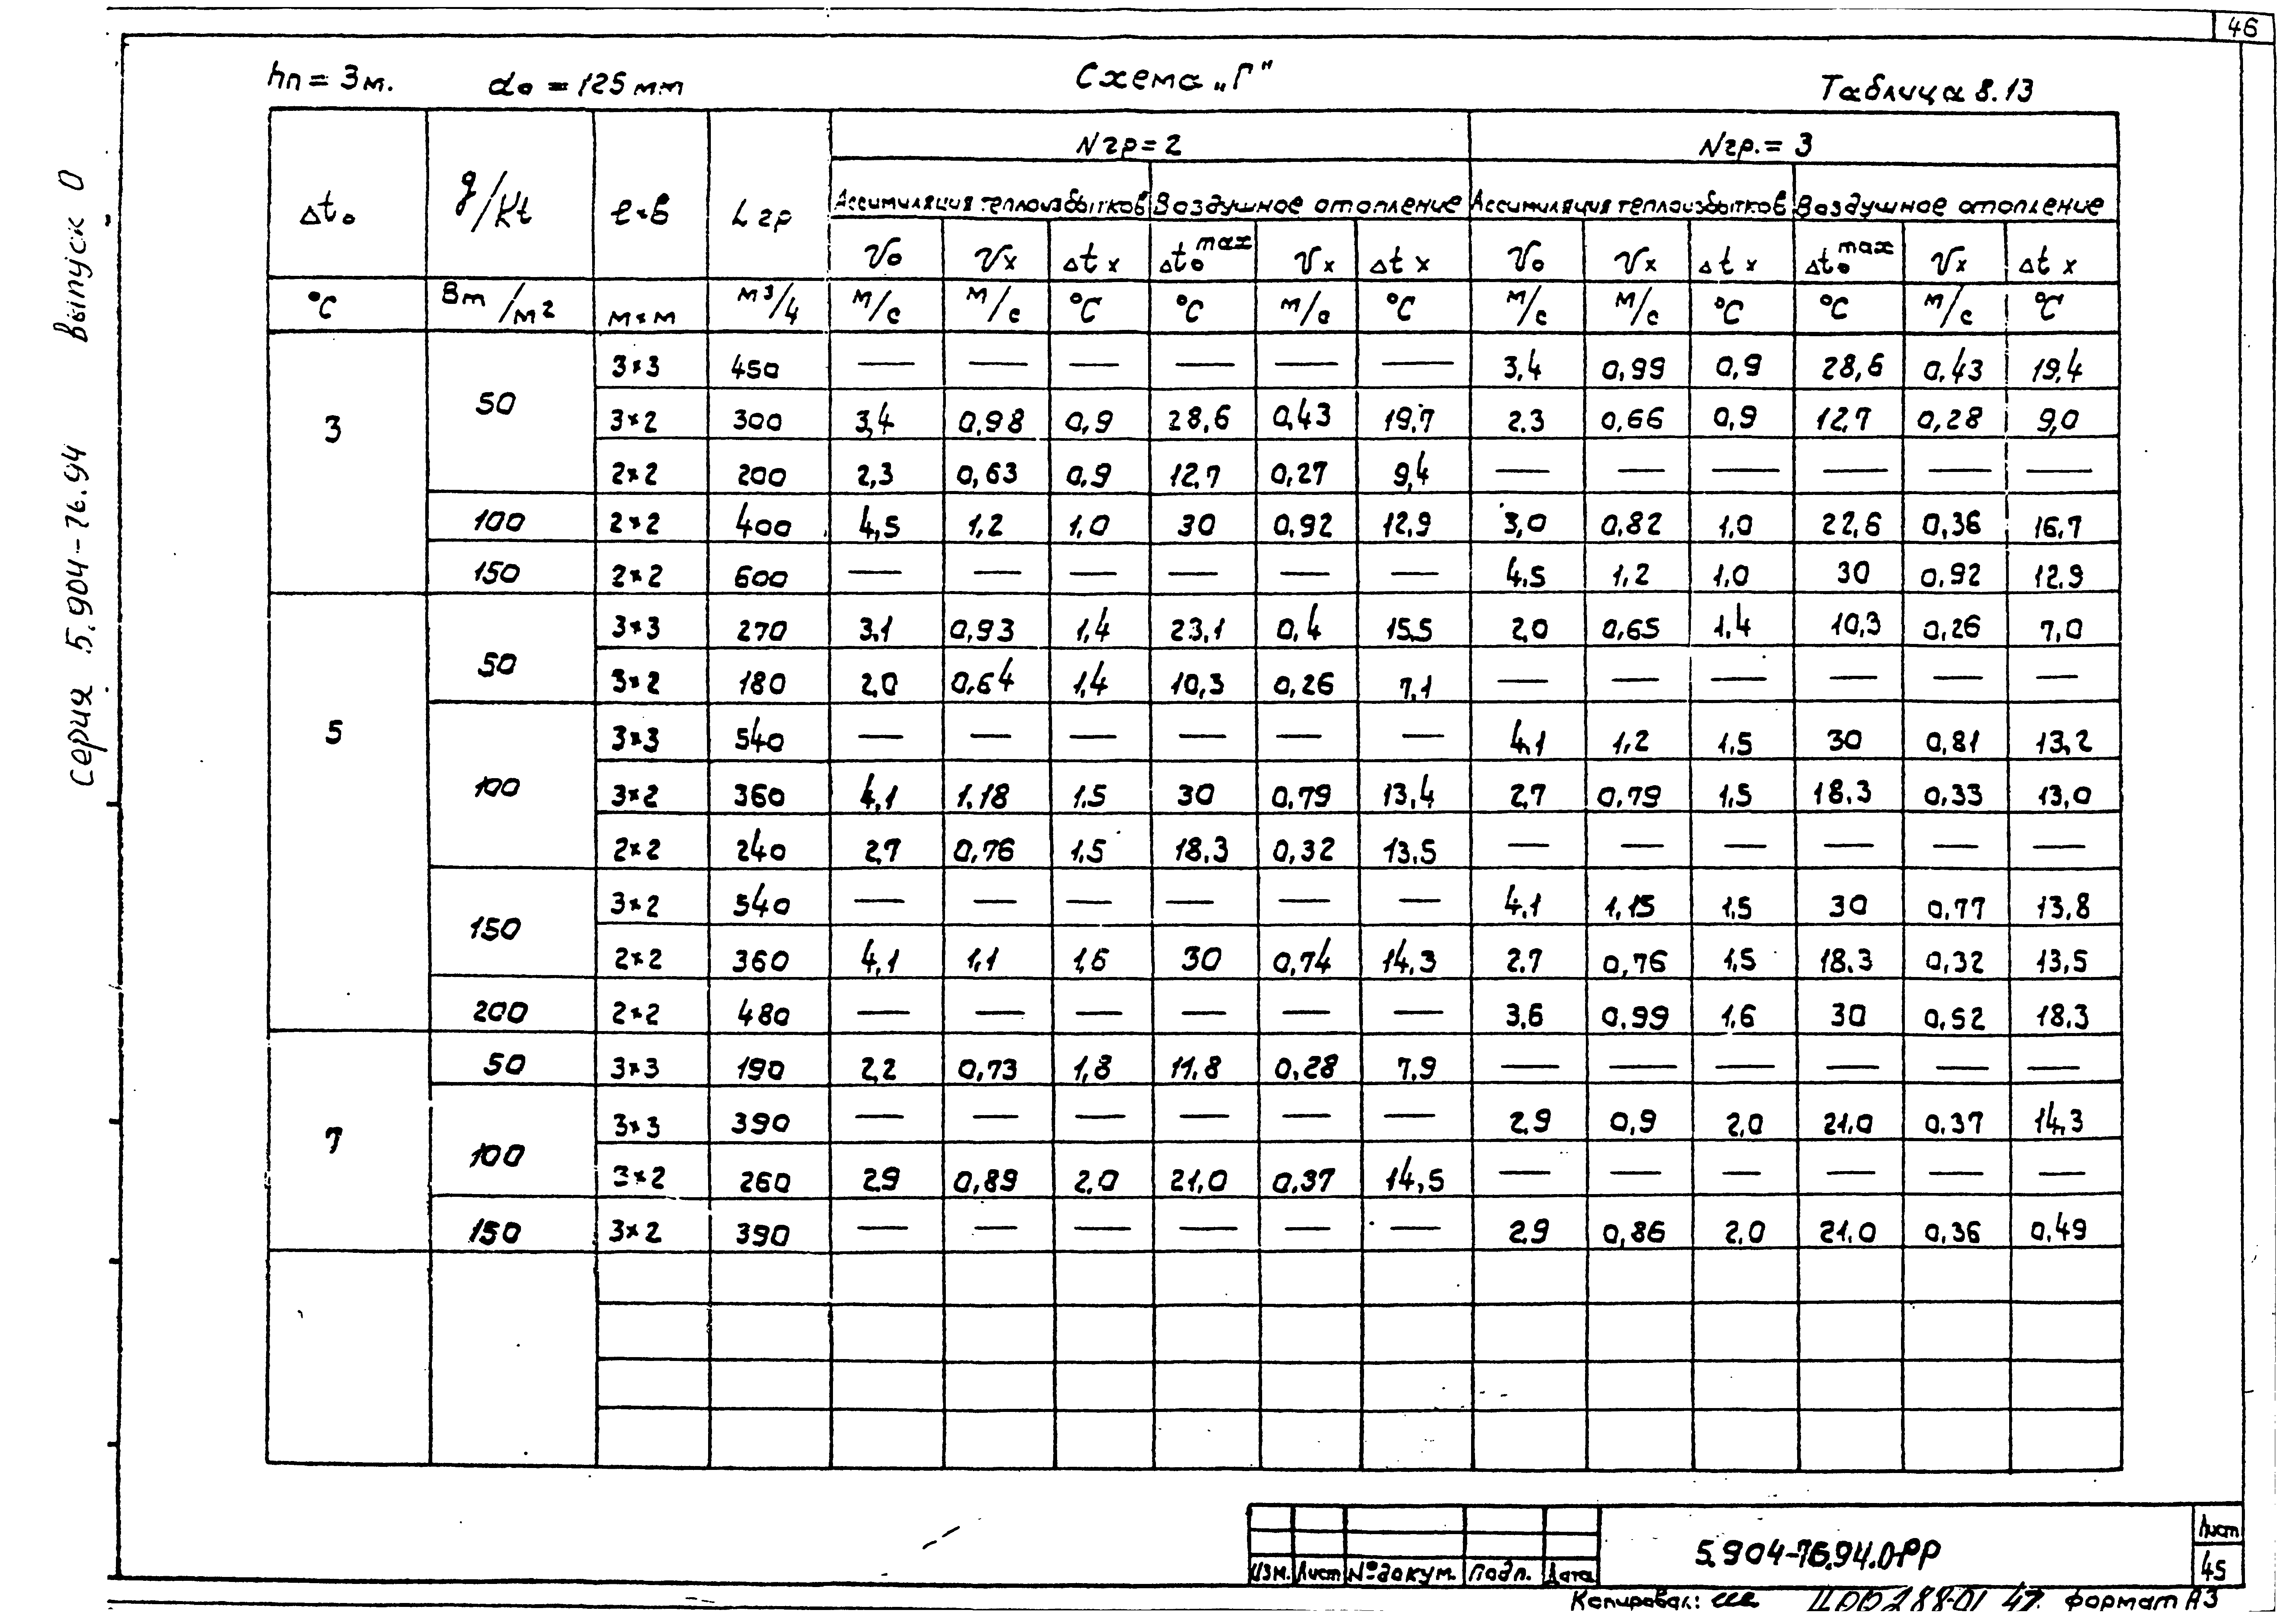 46
hп = 3м. do = 125 мм Схема „Г" Таблица 8.13
Серия 5.904-76.94 Выпуск 0
Δto q/Kt l×b L гр Nгр = 2 Nгр. = 3
Ассимиляция теплоизбытков Воздушное отопление Ассимиляция теплоизбытков Воздушное отопление
Vo Vx Δtx Δto max Vx Δtx Vo Vx Δtx Δto max Vx Δtx
°C Вт/м2 м×м м³/ч м/с м/с °C °C м/с °C м/с м/с °C °C м/с °C
3 50 3×3 450 — — — — — — 3,4 0,99 0,9 28,6 0,43 19,4
3×2 300 3,4 0,98 0,9 28,6 0,43 19,7 2.3 0,66 0,9 12,7 0,28 9,0
2×2 200 2,3 0,63 0,9 12,7 0,27 9,4 — — — — — —
100 2×2 400 4,5 1,2 1,0 30 0,92 12,9 3,0 0,82 1,0 22,6 0,36 16,7
150 2×2 600 — — — — — — 4,5 1,2 1,0 30 0,92 12,9
5 50 3×3 270 3,1 0,93 1,4 23,1 0,4 15,5 2,0 0,65 1,4 10,3 0,26 7,0
3×2 180 2,0 0,64 1,4 10,3 0,26 7,1 — — — — — —
100 3×3 540 — — — — — — 4,1 1,2 1,5 30 0,81 13,2
3×2 360 4,1 1,18 1,5 30 0,79 13,4 2,7 0,79 1,5 18.3 0,33 13,0
2×2 240 2,7 0,76 1,5 18,3 0,32 13,5 — — — — — —
150 3×2 540 — — — — — — 4,1 1,15 1,5 30 0,77 13,8
2×2 360 4,1 1,1 1,6 30 0,74 14,3 2.7 0,76 1,5 18.3 0,32 13,5
200 2×2 480 — — — — — — 3,6 0,99 1,6 30 0,52 18,3
7 50 3×3 190 2,2 0,73 1,8 11,8 0,28 7,9 — — — — — —
100 3×3 390 — — — — — — 2,9 0,9 2,0 21,0 0,37 14,3
3×2 260 2,9 0,89 2,0 21,0 0,37 14,5 — — — — — —
150 3×2 390 — — — — — — 2,9 0,86 2,0 21,0 0,36 0,49
5.904-76.94.0-РР Лист
45
Изм. Лист №докум. Подп. Дата
Копировал: ЦОО288-01 47. формат А3